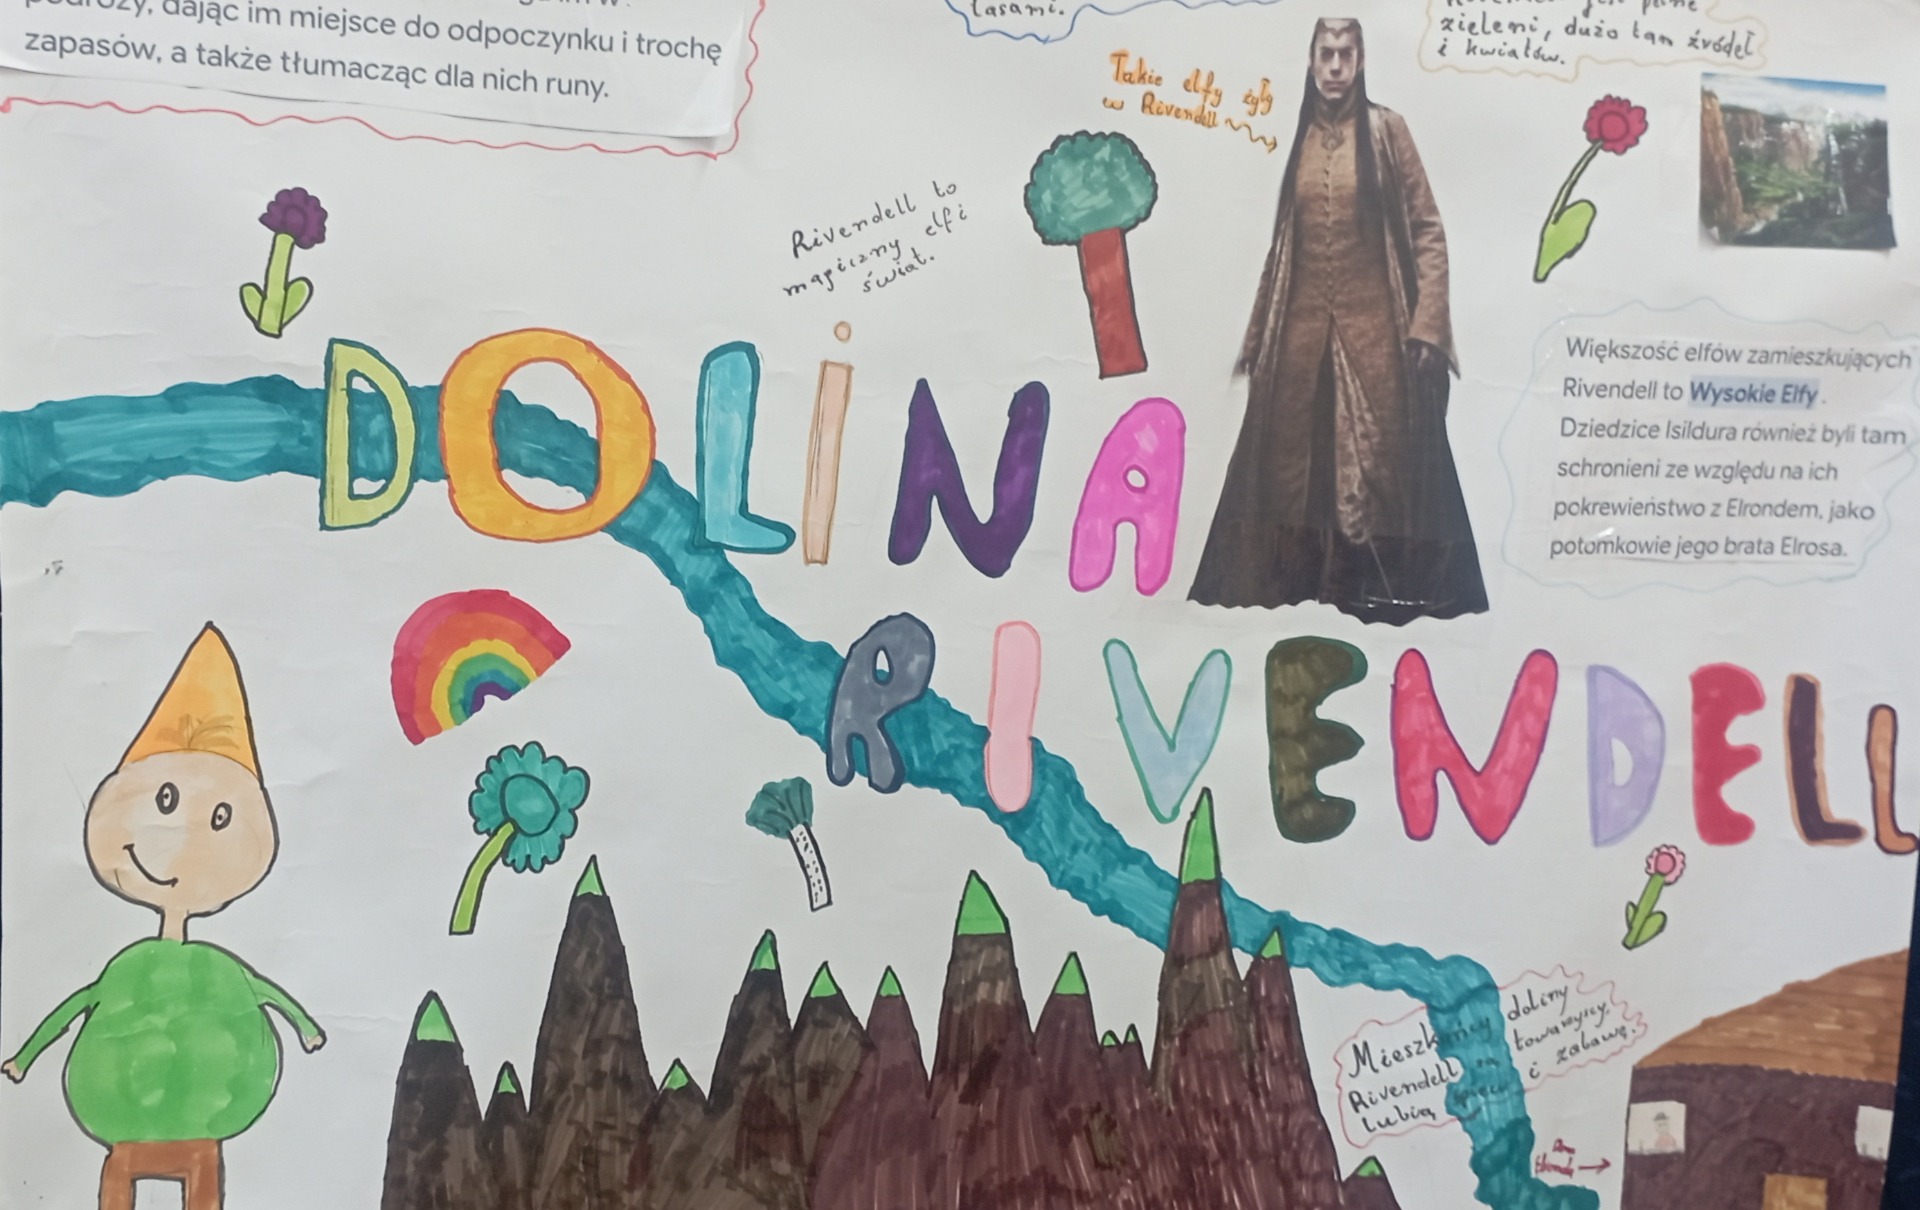 dając im miejsce do odpoczynku i trochę
zapasów, a także tłumacząc dla nich runy.
lasami.
zieleni, dużo tam źródeł
i kwiatów.
Takie elfy żyły
w Rivendell
Rivendell to
magiczny elfi
świat.
DOLiNA
RIVENDELL
Większość elfów zamieszkujących
Rivendell to Wysokie Elfy.
Dziedzice Isildura również byli tam
schronieni ze względu na ich
pokrewieństwo z Elrondem, jako
potomkowie jego brata Elrosa.
Mieszkańcy doliny
Rivendell są towarzyscy,
lubią śpiew i zabawę.
Dom
Elronda